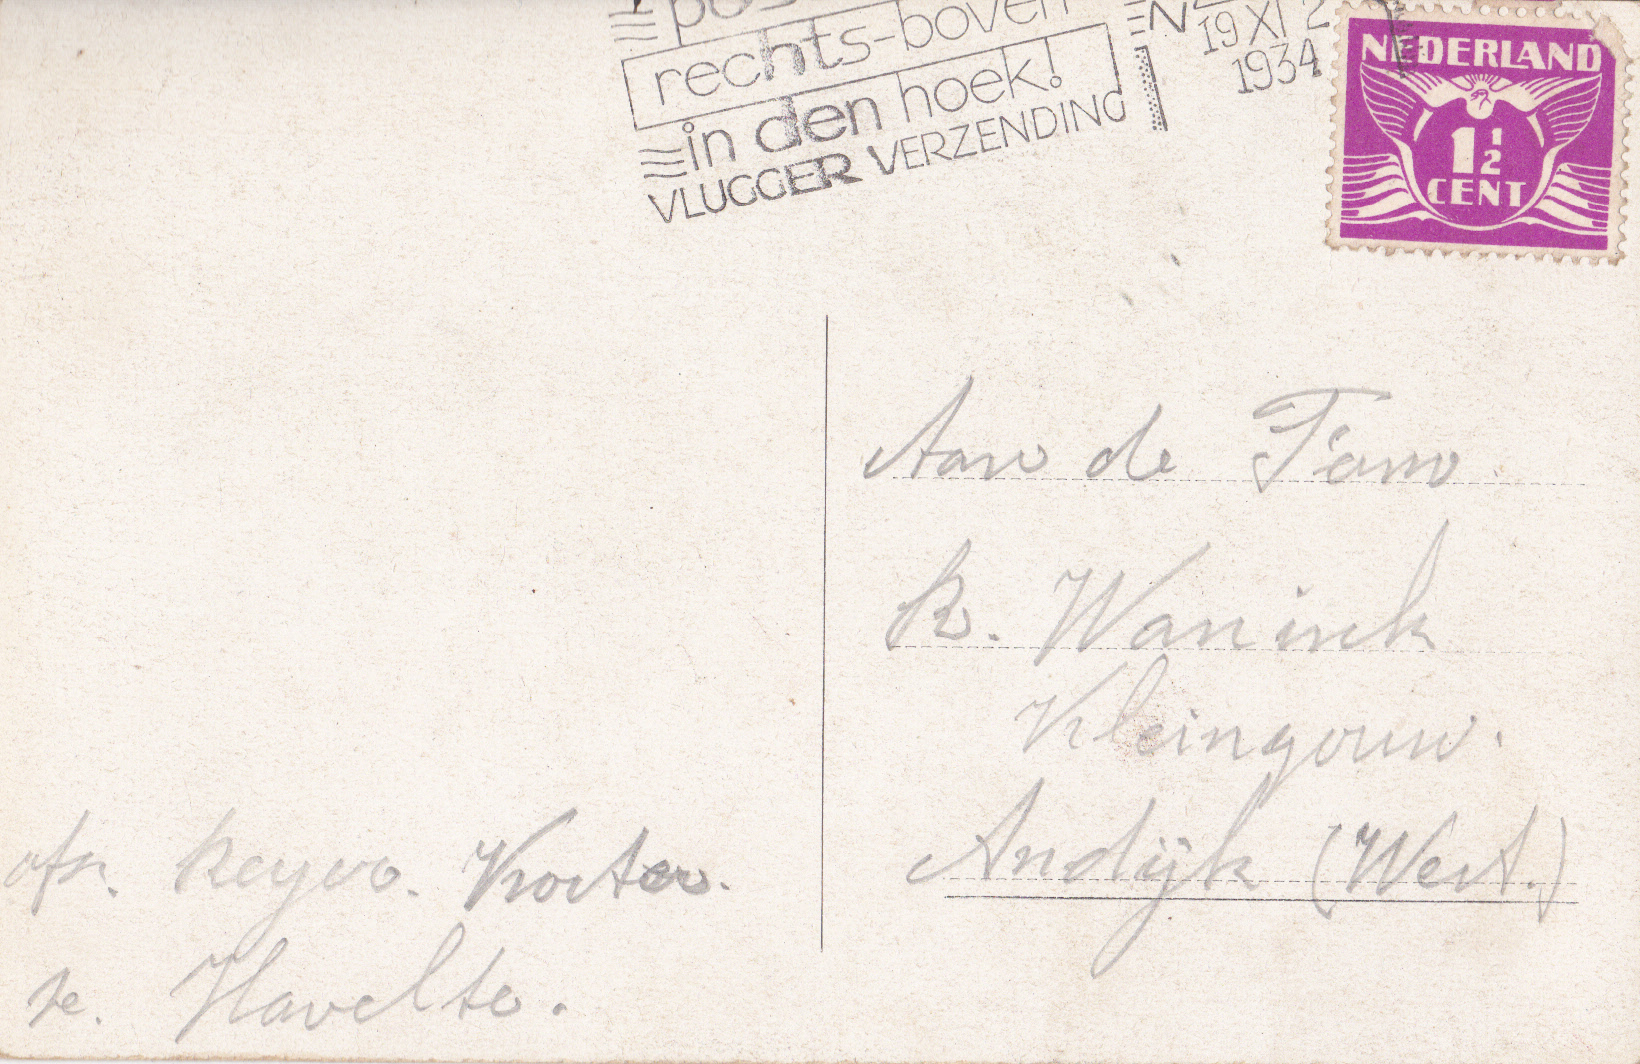 rechts-boven
in den hoek!
VLUGGER VERZENDING
19 XI 2
1934
NEDERLAND
1 1/2
CENT
Aan de Fam.
K. Wanink
Kleingouw.
Andijk (West.)
afz. Korter.
te. Havelte.